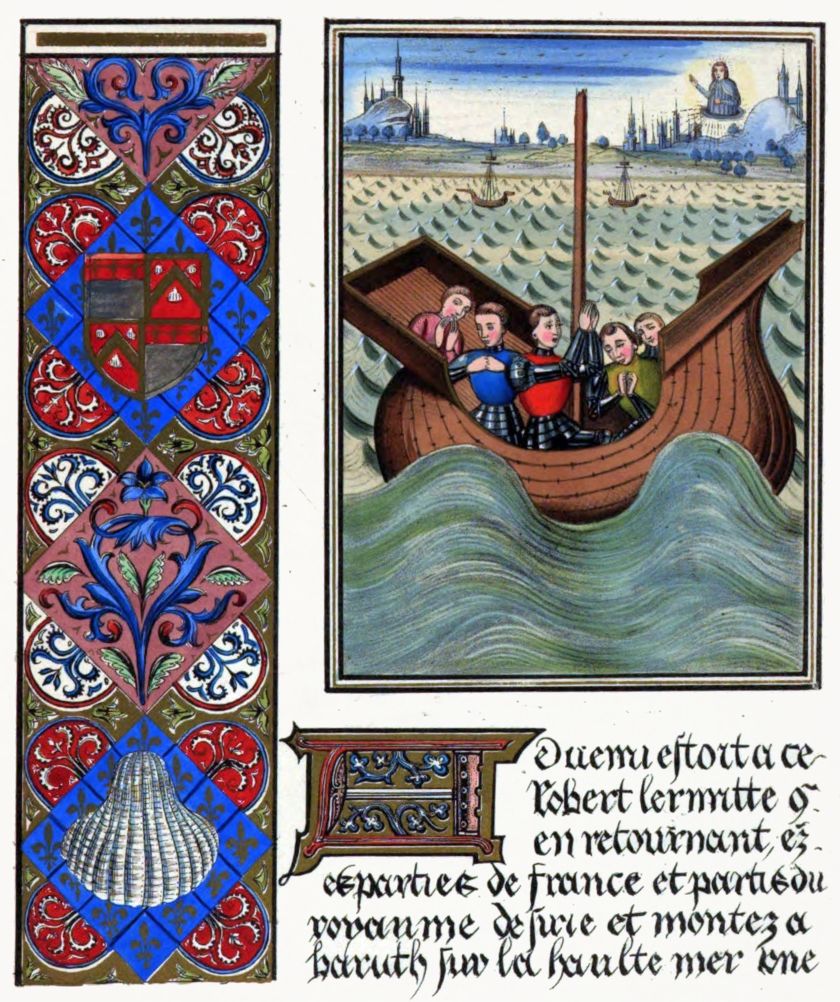 Advenu estoit a ce
Robert lermitte q.
en retournant, ez.
es parties de france et partis du
royaume de sirie et montez a
baruth sur la haulte mer une